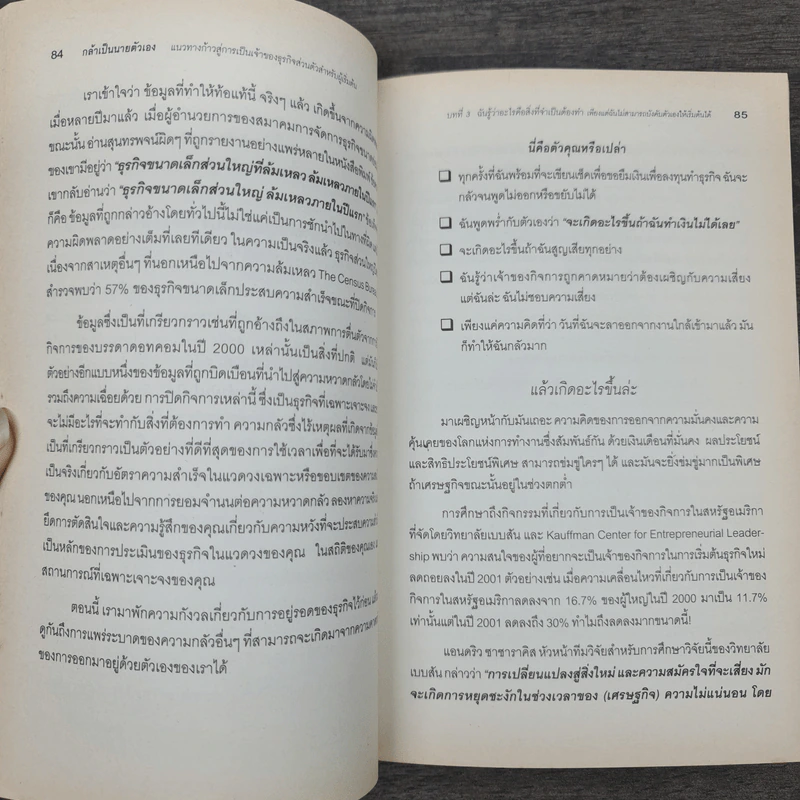 84 กล้าเป็นนายตัวเอง แนวทางก้าวสู่การเป็นเจ้าของธุรกิจส่วนตัวสำหรับผู้เริ่มต้น
เราเข้าใจว่า ข้อมูลที่ทำให้ท้อแท้นี้ จริงๆ แล้ว เกิดขึ้นจากความผิด
เมื่อหลายปีมาแล้ว เมื่อผู้อำนวยการของสมาคมการจัดการธุรกิจขนาด
ขณะนั้น อ่านสุนทรพจน์ผิดๆ ที่ถูกรายงานอย่างแพร่หลายในหนังสือพิมพ์
ของเขามีอยู่ว่า "ธุรกิจขนาดเล็กส่วนใหญ่ที่ล้มเหลว ล้มเหลวภายในปีแรก
เขากลับอ่านว่า "ธุรกิจขนาดเล็กส่วนใหญ่ ล้มเหลวภายในปีแรก"
ก็คือ ข้อมูลที่ถูกกล่าวอ้างโดยทั่วไปนี้ไม่ใช่แค่เป็นการชักนำไปในทางที่ผิด
ความผิดพลาดอย่างเต็มที่เลยทีเดียว ในความเป็นจริงแล้ว ธุรกิจส่วนใหญ่
เนื่องจากสาเหตุอื่นๆ ที่นอกเหนือไปจากความล้มเหลว The Census Bureau
สำรวจพบว่า 57% ของธุรกิจขนาดเล็กประสบความสำเร็จขณะที่ปิดกิจการ
ข้อมูลซึ่งเป็นที่เกรียวกราวเช่นที่ถูกอ้างถึงในสภาพการตื่นตัวจากการ
กิจการของบรรดาดอทคอมในปี 2000 เหล่านั้นเป็นสิ่งที่ปกติ แต่มัน
ตัวอย่างอีกแบบหนึ่งของข้อมูลที่ถูกบิดเบือนที่นำไปสู่ความหวาดกลัวโดย
รวมถึงความเฉื่อยด้วย การปิดกิจการเหล่านี้ ซึ่งเป็นธุรกิจที่เฉพาะเจาะจง
จะไม่มีอะไรที่จะทำกับสิ่งที่ต้องการทำ ความกลัวซึ่งไร้เหตุผลที่เกิดจากข้อมูล
เป็นที่เกรียวกราวเป็นตัวอย่างที่ดีที่สุดของการใช้เวลาเพื่อที่จะได้รับ
เป็นจริงเกี่ยวกับอัตราความสำเร็จในแวดวงเฉพาะหรือขอบเขตของความ
ของคุณ นอกเหนือไปจากการยอมจำนนต่อความหวาดกลัว ลองหาความจริง
ยึดการตัดสินใจและความรู้สึกของคุณเกี่ยวกับความหวังที่จะประสบความสำเร็จ
เป็นหลักของการประเมินของธุรกิจในแวดวงของคุณ ในสถิติของคุณเอง
สถานการณ์ที่เฉพาะเจาะจงของคุณ
ตอนนี้ เรามาพักความกังวลเกี่ยวกับการอยู่รอดของธุรกิจไว้ก่อน
ดูกันถึงการแพร่ระบาดของความกลัวอื่นๆ ที่สามารถจะเกิดมาจากความคาด
ของการออกมาอยู่ด้วยตัวเองของเราได้
บทที่ 3 ฉันรู้ว่าอะไรคือสิ่งที่จำเป็นต้องทำ เพียงแต่ฉันไม่สามารถบังคับตัวเองให้เริ่มต้นได้ 85
นี่คือตัวคุณหรือเปล่า
ทุกครั้งที่ฉันพร้อมที่จะเขียนเช็คเพื่อขอยืมเงินเพื่อลงทุนทำธุรกิจ ฉันจะ
กลัวจนพูดไม่ออกหรือขยับไม่ได้
ฉันพูดพร่ำกับตัวเองว่า "จะเกิดอะไรขึ้นถ้าฉันทำเงินไม่ได้เลย"
จะเกิดอะไรขึ้นถ้าฉันสูญเสียทุกอย่าง
ฉันรู้ว่าเจ้าของกิจการถูกคาดหมายว่าต้องเผชิญกับความเสี่ยง
แต่ฉันล่ะ ฉันไม่ชอบความเสี่ยง
เพียงแค่ความคิดที่ว่า วันที่ฉันจะลาออกจากงานใกล้เข้ามาแล้ว มัน
ก็ทำให้ฉันกลัวมาก
แล้วเกิดอะไรขึ้นล่ะ
มาเผชิญหน้ากับมันเถอะ ความคิดของการออกจากความมั่นคงและความ
คุ้นเคยของโลกแห่งการทำงานซึ่งสัมพันธ์กัน ด้วยเงินเดือนที่มั่นคง ผลประโยชน์
และสิทธิประโยชน์พิเศษ สามารถข่มขู่ใครๆ ได้ และมันจะยิ่งข่มขู่มากเป็นพิเศษ
ถ้าเศรษฐกิจขณะนั้นอยู่ในช่วงตกต่ำ
การศึกษาถึงกิจกรรมที่เกี่ยวกับการเป็นเจ้าของกิจการในสหรัฐอเมริกา
ที่จัดโดยวิทยาลัยเบบสัน และ Kauffman Center for Entrepreneurial Leader-
ship พบว่า ความสนใจของผู้ที่อยากจะเป็นเจ้าของกิจการในการเริ่มต้นธุรกิจใหม่
ลดถอยลงในปี 2001 ตัวอย่างเช่น เมื่อความเคลื่อนไหวที่เกี่ยวกับการเป็นเจ้าของ
กิจการในสหรัฐอเมริกาลดลงจาก 16.7% ของผู้ใหญ่ในปี 2000 มาเป็น 11.7%
เท่านั้นแต่ในปี 2001 ลดลงถึง 30% ทำไมถึงลดลงมากขนาดนี้!
แอนดริว ซาซาราคิส หัวหน้าทีมวิจัยสำหรับการศึกษาวิจัยนี้ของวิทยาลัย
เบบสัน กล่าวว่า "การเปลี่ยนแปลงสู่สิ่งใหม่ และความสมัครใจที่จะเสี่ยง มัก
จะเกิดการหยุดชะงักในช่วงเวลาของ (เศรษฐกิจ) ความไม่แน่นอน โดย